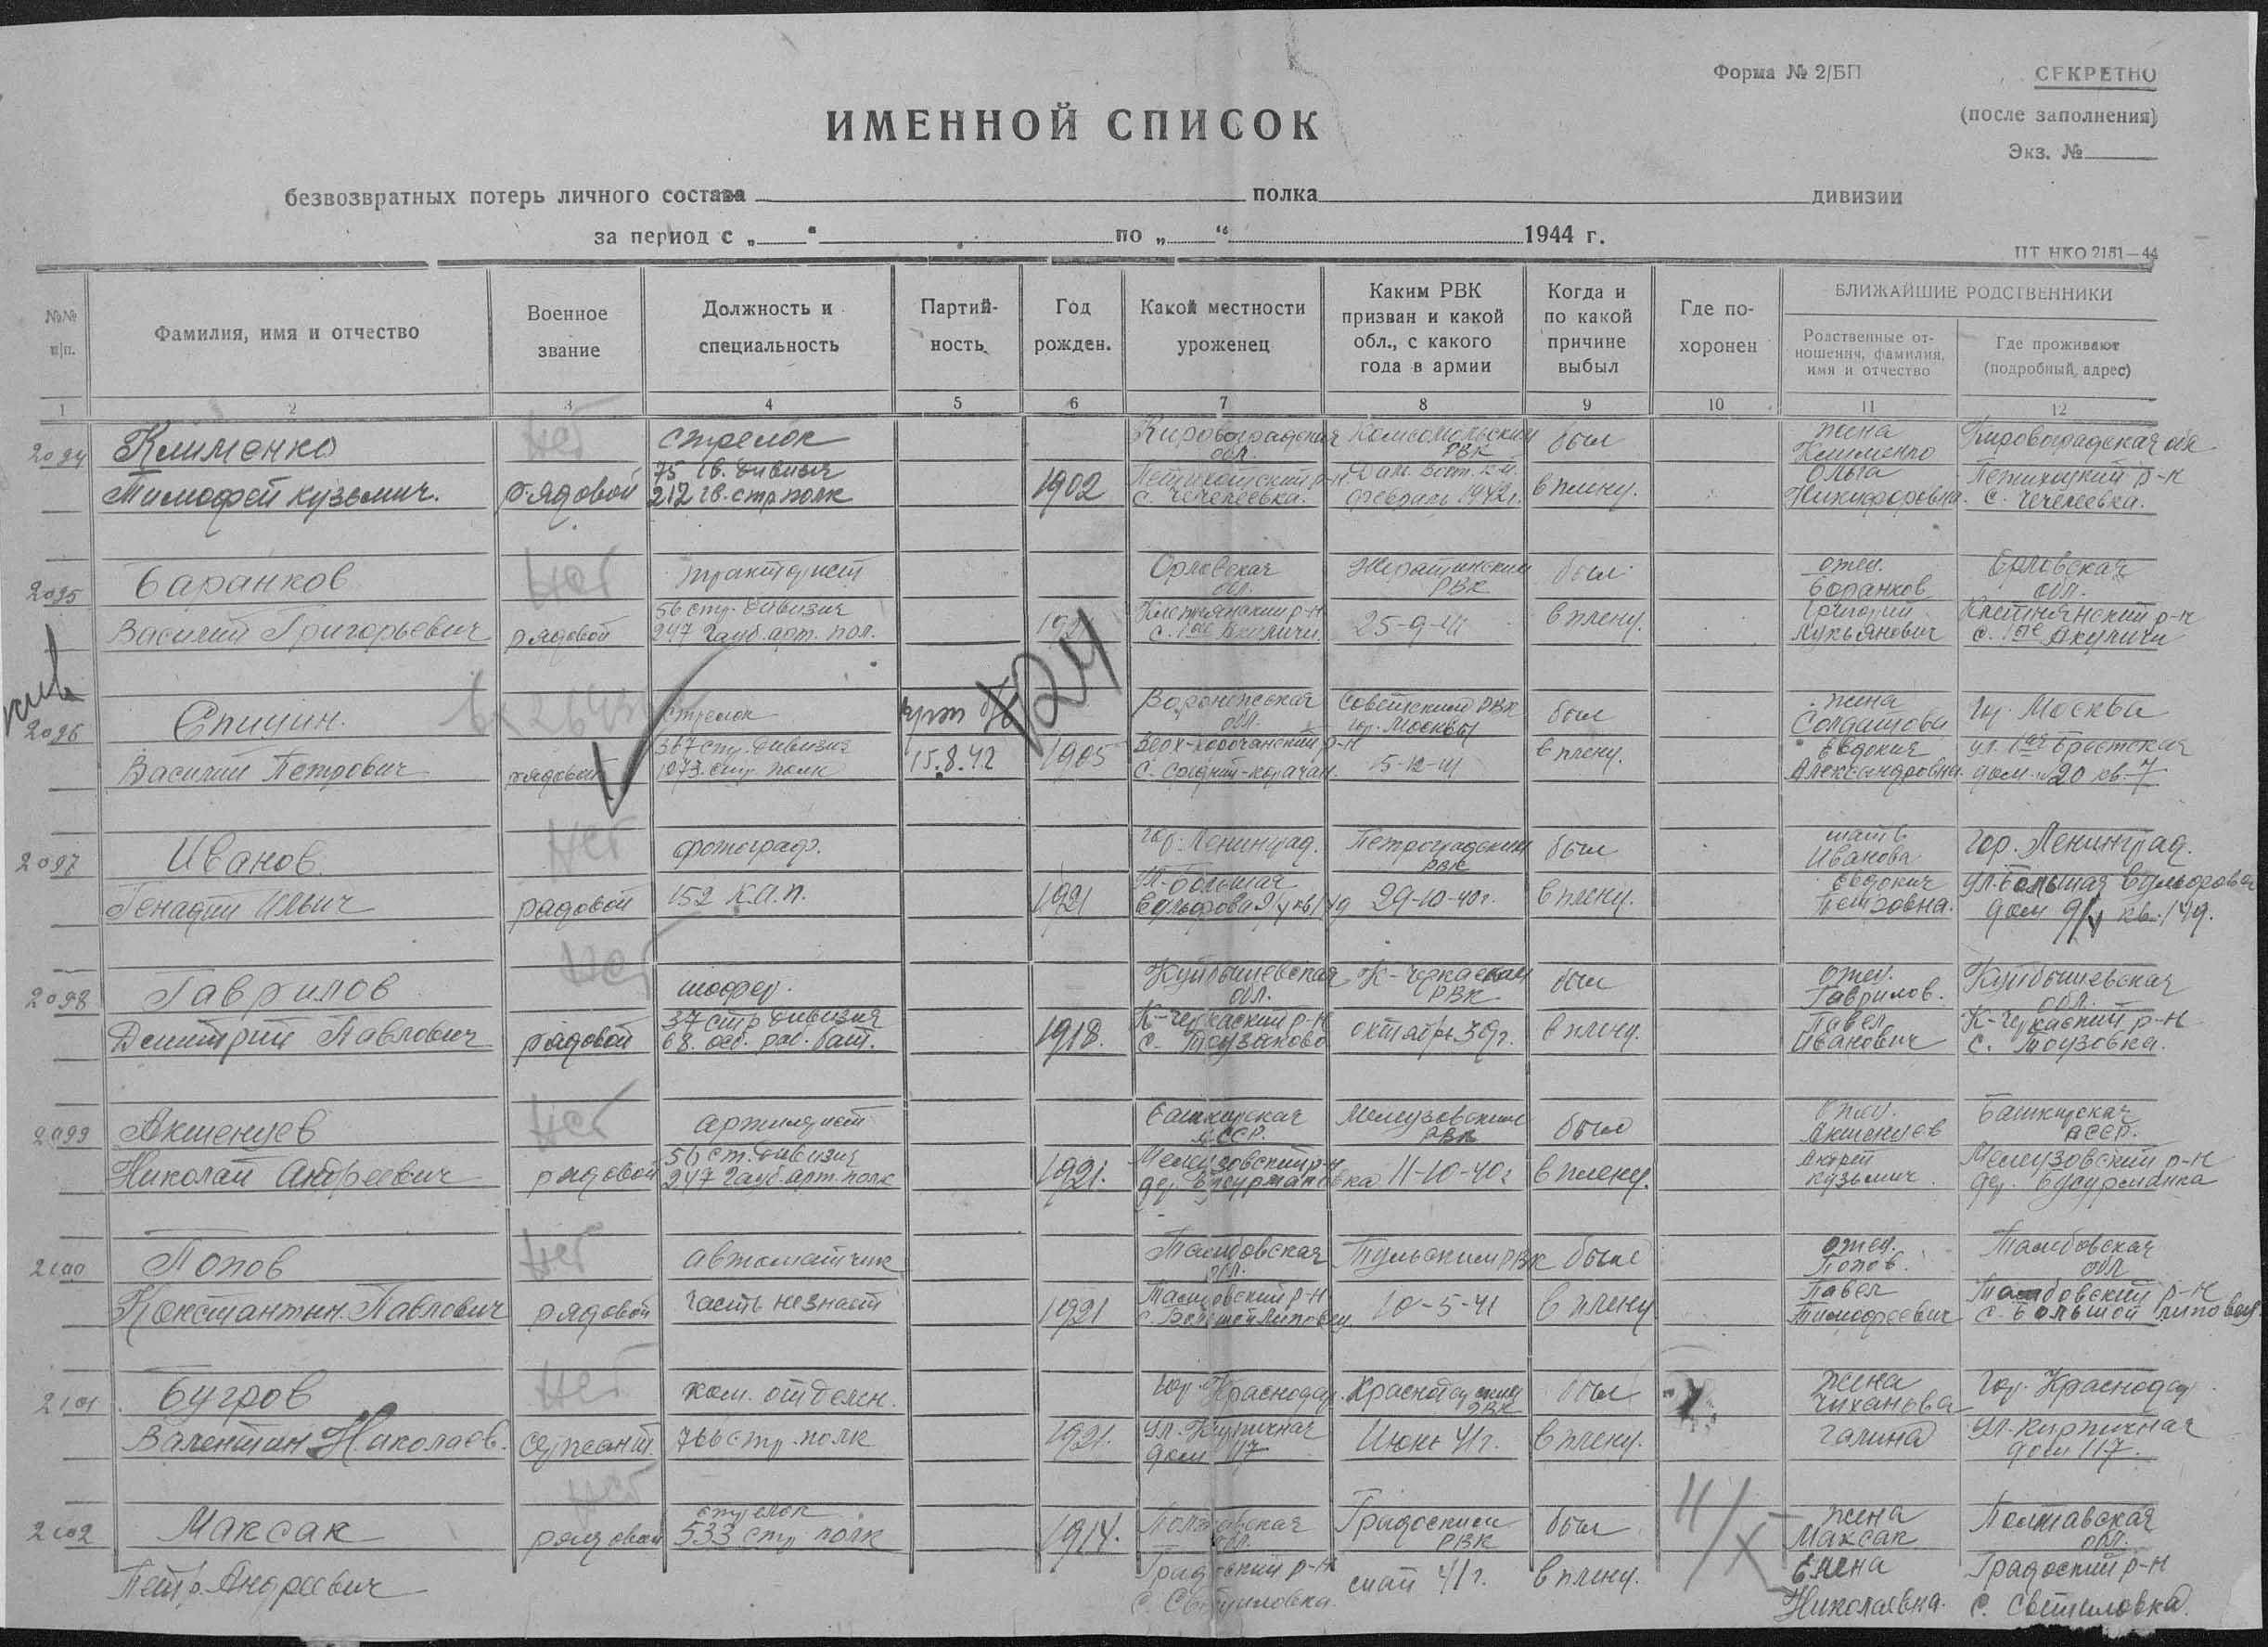 Форма № 2/БП
СЕКРЕТНО
(после заполнения)
Экз. №
ИМЕННОЙ СПИСОК
безвозвратных потерь личного состава полка дивизии
за период с „ “ по „ “ 1944 г.
ПТ НКО 2151—44
№№ п/п.
Фамилия, имя и отчество
Военное звание
Должность и специальность
Партийность
Год рожден.
Какой местности уроженец
Каким РВК призван и какой обл., с какого года в армии
Когда и по какой причине выбыл
Где похоронен
БЛИЖАЙШИЕ РОДСТВЕННИКИ
Родственные отношения, фамилия, имя и отчество
Где проживают (подробный адрес)
1 2 3 4 5 6 7 8 9 10 11 12
2094 Клименко нет стрелок Кировоградская обл. Комсомольским РВК был жена Клименко Кировоградская обл
Тимофей Кузьмич. рядовой 75 гв. дивизия 212 гв. стр полк 1902 р-н с. Чечелеевка. февраль 1942 г. в плену. Ольга Никифоровна. р-н с. Чечелеевка.
2095 Баранков нет тракторист Орловская обл. РВК был отец. Баранков Орловская обл.
Василий Григорьевич рядовой 56 стр. дивизия 247 гауб. арт. пол. 1921 Клетнянский р-н с. 1ые Акуличи. 25-9-41 в плену. Григорий Лукьянович Клетнянский р-н с. 1ые Акуличи
2096 Спицин. стрелок 524 Воронежская обл. Советским РВК гор. Москвы был жена Солдатова гор. Москва
Василий Петрович рядовой 367 стр. дивизия 1073 стр. полк 15.8.42 1905 р-н с. Средний-Карачан. 15-12-41 в плену. Евдокия Александровна. ул. 1ая Брестская дом № 20 кв. 7
2097 Иванов. нет фотограф. гор. Ленинград. Петроградским РВК был мать Иванова гор. Ленинград.
Генадий Ильич рядовой 152 к.а.п. 1921 ул. Большая 29-10-40 г. в плену. Евдокия Петровна. ул. Большая дом 9/4 кв. 149.
2098 Гаврилов нет шофер. Куйбышевская обл. К-Черкаским РВК был отец. Гаврилов. Куйбышевская обл.
Дмитрий Павлович рядовой 37 стр дивизия 68. раб. бат. 1918. К-Черкаский р-н с. Тоузаково октябрь 39 г. в плену. Павел Иванович К-Черкаский р-н с. Тоузовка.
2099 Акшенцев нет артилерист Башкирская АССР. Мелеузовским РВК было отец. Акшенцев Башкирская АССР.
Николай Андреевич рядовой 56 ст. дивизия 247 гауб. арт. полк 1921. Мелеузовский р-н дер. 11-10-40 г в плену. Андрей Кузьмич. Мелеузовский р-н дер.
2100 Попов нет автоматчик Тамбовская обл. Тульским РВК было отец. Попов. Тамбовская обл
Константин Павлович рядовой часть не знает 1921 Тамбовский р-н с. Большой Липовец. 10-5-41 в плену Павел Тимофеевич Тамбовский р-н с. Большой Липовец.
2101 Бугров нет ком. отделен. гор. Краснодар. РВК был жена Чиханова гор. Краснодар
Валентин Николаев. сержант 766 стр. полк 1921. ул. Кирпичная дом 117 Июнь 41 г. в плену. Галина ул. Кирпичная дом 117.
2102 Максак нет стрелок Полтавская обл. Градоским РВК был жена Максак Полтавская обл.
Петр Андреевич рядовой 533 стр полк 1914. Градоский р-н май 41 г. в плену. Елена Николаевна. Градоский р-н с. Светиловка.